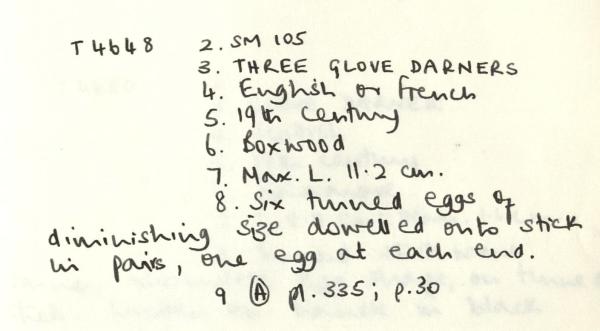 T4648 2. SM 105
3. THREE GLOVE DARNERS
4. English or French
5. 19th Century
6. Boxwood
7. Max. L. 11.2 cm.
8. Six turned eggs of
diminishing size dowelled onto stick
in pairs, one egg at each end.
9 (A) pl.335; p.30